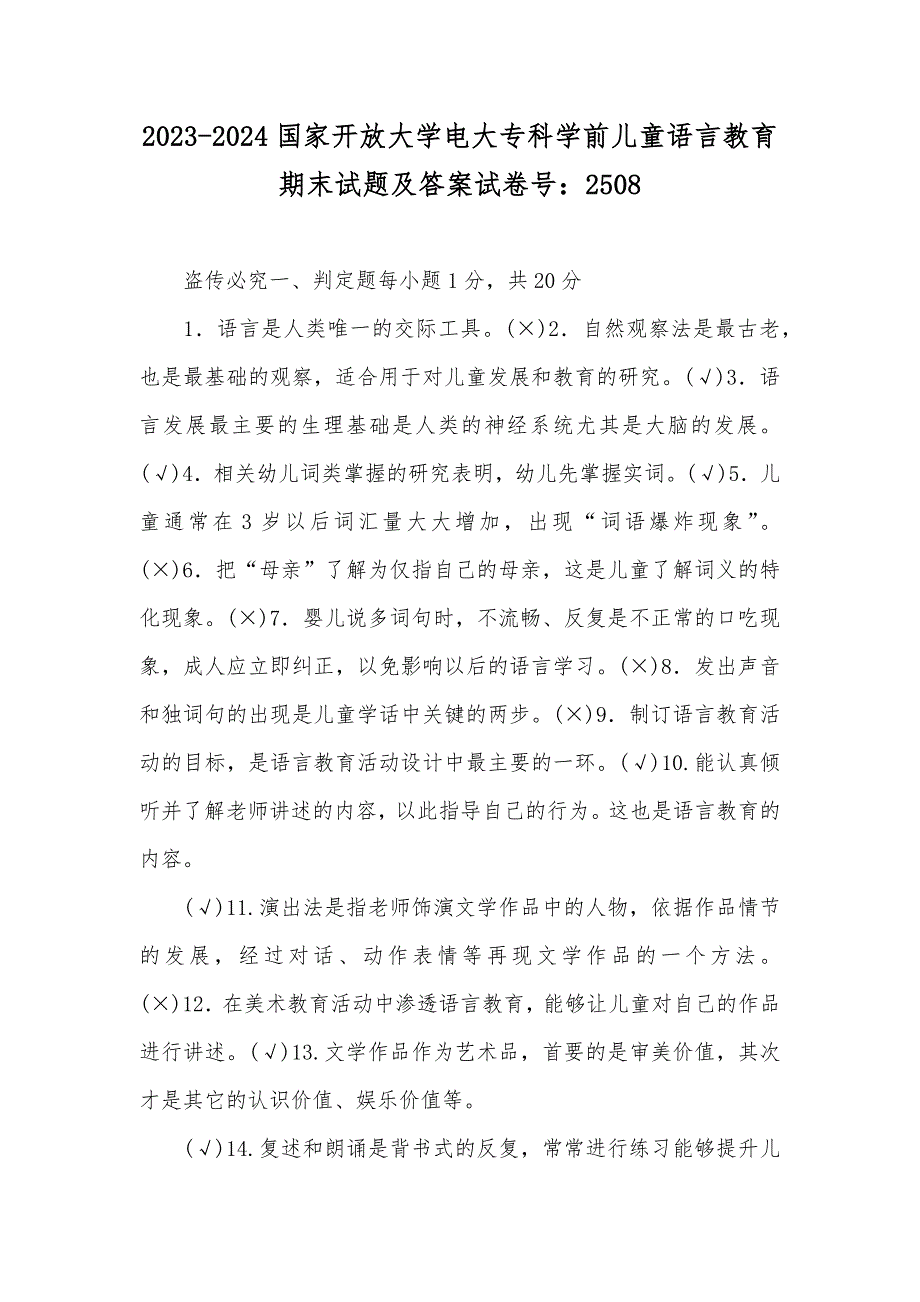 2023-2024国家开放大学电大专科学前儿童语言教育
期末试题及答案试卷号：2508
盗传必究一、判定题每小题1分，共20分
1．语言是人类唯一的交际工具。(×)2．自然观察法是最古老，
也是最基础的观察，适合用于对儿童发展和教育的研究。(√)3．语
言发展最主要的生理基础是人类的神经系统尤其是大脑的发展。
(√)4．相关幼儿词类掌握的研究表明，幼儿先掌握实词。(√)5．儿
童通常在3岁以后词汇量大大增加，出现“词语爆炸现象”。
(×)6．把“母亲”了解为仅指自己的母亲，这是儿童了解词义的特
化现象。(×)7．婴儿说多词句时，不流畅、反复是不正常的口吃现
象，成人应立即纠正，以免影响以后的语言学习。(×)8．发出声音
和独词句的出现是儿童学话中关键的两步。(×)9．制订语言教育活
动的目标，是语言教育活动设计中最主要的一环。(√)10.能认真倾
听并了解老师讲述的内容，以此指导自己的行为。这也是语言教育的
内容。
(√)11.演出法是指老师饰演文学作品中的人物，依据作品情节
的发展，经过对话、动作表情等再现文学作品的一个方法。
(×)12．在美术教育活动中渗透语言教育，能够让儿童对自己的作品
进行讲述。(√)13.文学作品作为艺术品，首要的是审美价值，其次
才是其它的认识价值、娱乐价值等。
(√)14.复述和朗诵是背书式的反复，常常进行练习能够提升儿